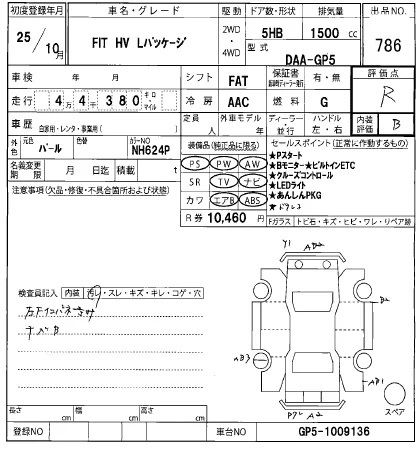 初度登録年月 車名・グレード 駆動 ドア数・形状 排気量 出品NO.
25/10月 FIT HV Lパッケージ 2WD・4WD 5HB 1500 cc 786
型式 DAA-GP5
車検 年 月 シフト FAT 保証書 有・無 評価点
走行 4万4千380 キロ・マイル 冷房 AAC 燃料 G R
車歴 自家用・レンタ・事業用( ) 定員 人 外車モデル 年 ディーラー・並行 ハンドル 左・右 内装評価 B
外色 元色 パール 色替 カラーNO NH624P 装備品(純正品に限る) セールスポイント(正常に作動するもの)
名義変更期限 月 日迄 積載 t PS PW AW
注意事項(欠品・修復・不具合箇所および状態) SR TV ナビ
カワ エアB ABS
★Pスタート
★Bモニター★ビルトインETC
★クルーズコントロール
★LEDライト
★あんしんPKG
R券 10,460 円
Fガラス トビ石・キズ・ヒビ・ワレ・リペア跡
検査員記入 内装 汚レ・スレ・キズ・キレ・コゲ・穴
スペア
長さ cm 幅 cm 高さ cm
登録NO 車台NO GP5-1009136